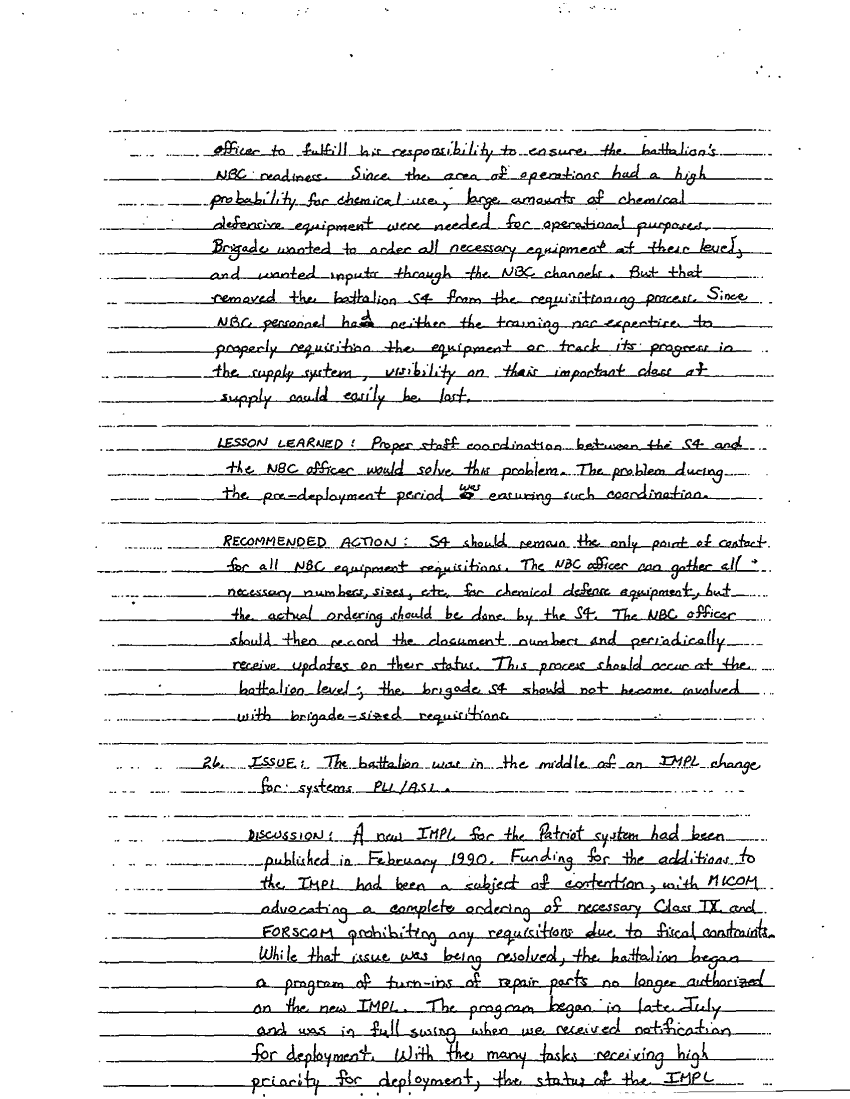 officer to fulfill his responsibility to ensure the battalion's
NBC readiness. Since the area of operations had a high
probability for chemical use, large amounts of chemical
defensive equipment were needed for operational purposes.
Brigade wanted to order all necessary equipment at their level,
and wanted inputs through the NBC channels. But that
removed the battalion S4 from the requisitioning process. Since
NBC personnel had neither the training nor expertise to
properly requisition the equipment or track its progress in
the supply system, visibility on this important class of
supply could easily be lost.
LESSON LEARNED: Proper staff coordination between the S4 and
the NBC officer would solve this problem. The problem during
the pre-deployment period was ensuring such coordination.
RECOMMENDED ACTION: S4 should remain the only point of contact
for all NBC equipment requisitions. The NBC officer can gather all
necessary numbers, sizes, etc. for chemical defense equipment, but
the actual ordering should be done by the S4. The NBC officer
should then record the document numbers and periodically
receive updates on their status. This process should occur at the
battalion level; the brigade S4 should not become involved
with brigade-sized requisitions.
26. ISSUE: The battalion was in the middle of an IMPL change
for systems PLL/ASL.
DISCUSSION: A new IMPL for the Patriot system had been
published in February 1990. Funding for the additions to
the IMPL had been a subject of contention, with MICOM
advocating a complete ordering of necessary Class IX and
FORSCOM prohibiting any requisitions due to fiscal constraints.
While that issue was being resolved, the battalion began
a program of turn-ins of repair parts no longer authorized
on the new IMPL. The program began in late July
and was in full swing when we received notification
for deployment. With the many tasks receiving high
priority for deployment, the status of the IMPL